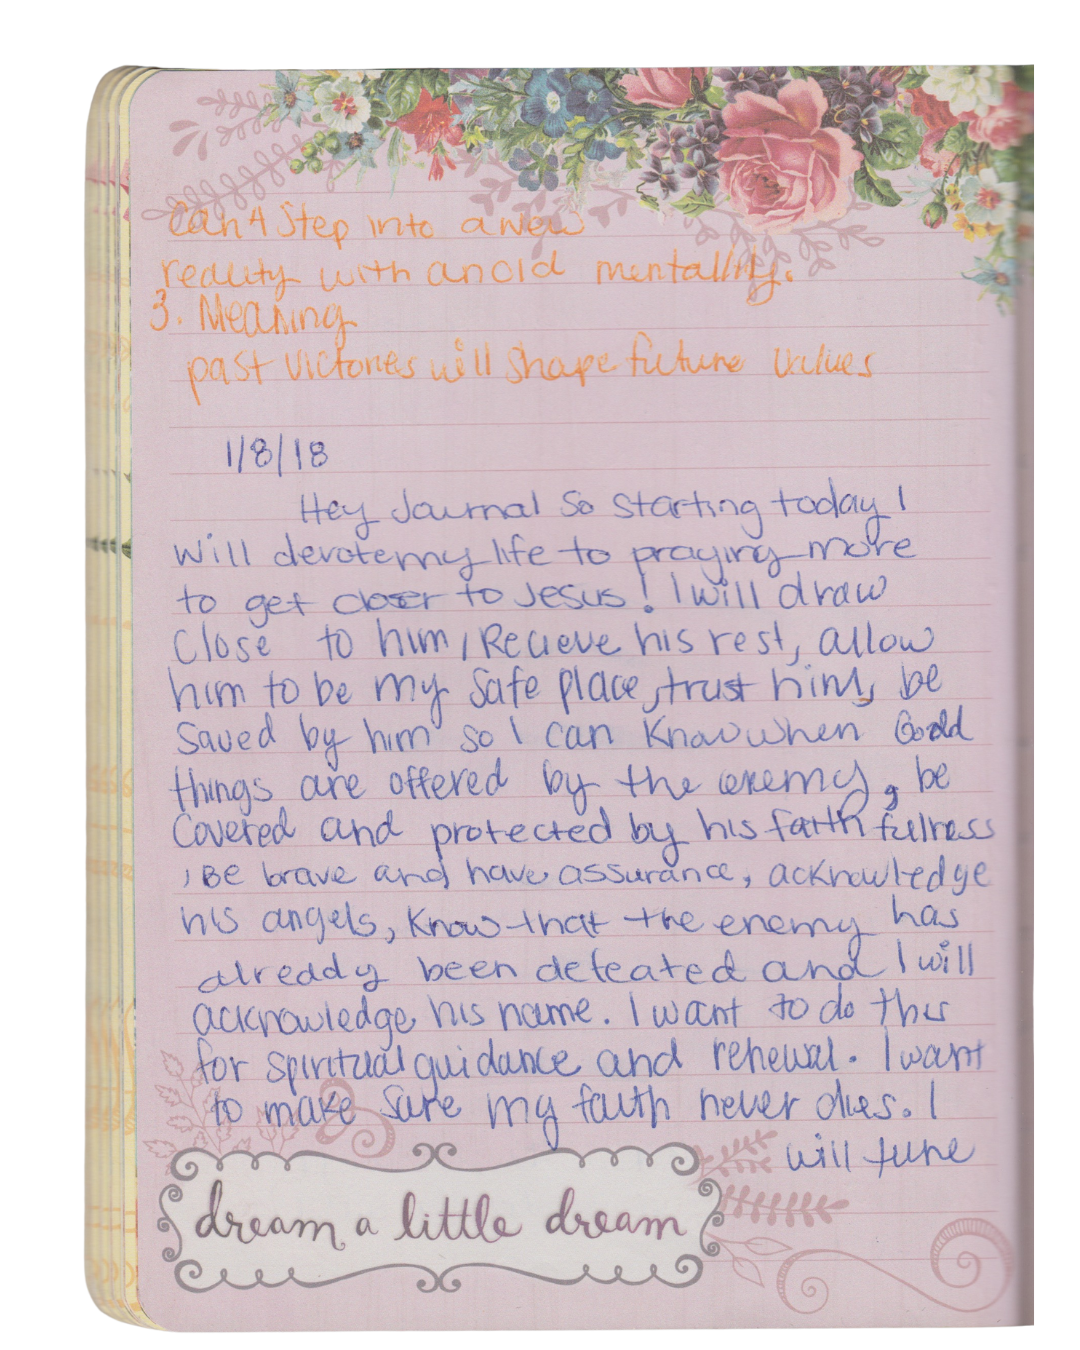 Can't Step into a new
reality with an old mentallity.
3. Meaning
past victories will shape future values
1/8/18
Hey Journal So starting today I
will devote my life to praying more
to get closer to Jesus! I will draw
close to him, Recieve his rest, allow
him to be my safe place, trust him, be
saved by him so I can know when Good
things are offered by the enemy, be
covered and protected by his faithfulness
, Be brave and have assurance, acknowledge
his angels, know that the enemy has
already been defeated and I will
acknowledge his name. I want to do this
for spiritual guidance and renewal. I want
to make sure my faith never dies. I
will tune
dream a little dream